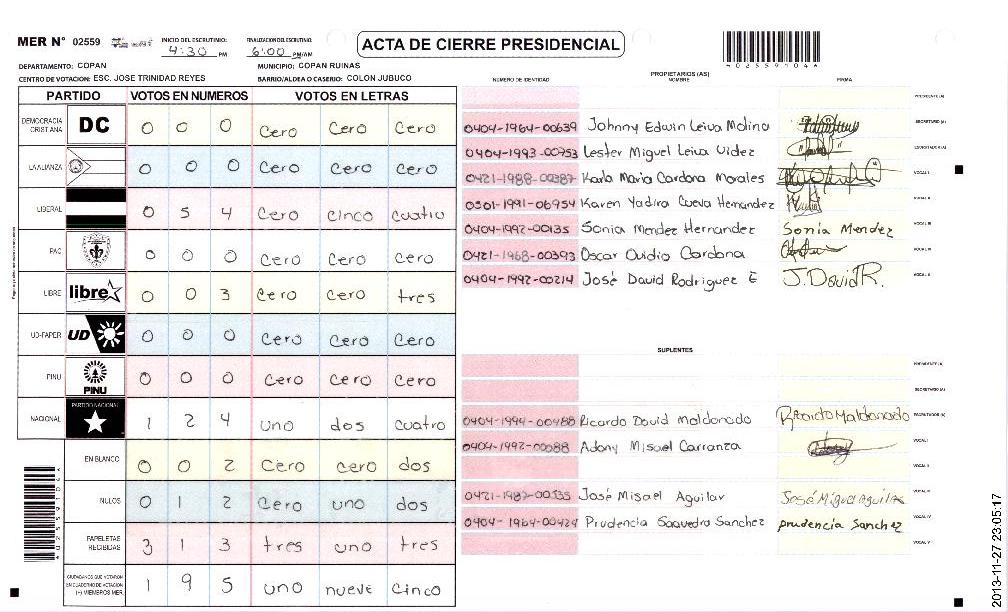 MER N° 02559 INICIO DEL ESCRUTINIO: 4:30 PM FINALIZACION DEL ESCRUTINIO: 6:00 PM/AM
ACTA DE CIERRE PRESIDENCIAL
DEPARTAMENTO: COPAN MUNICIPIO: COPAN RUINAS
CENTRO DE VOTACION: ESC. JOSE TRINIDAD REYES BARRIO/ALDEA O CASERIO: COLON JUBUCO
PARTIDO VOTOS EN NUMEROS VOTOS EN LETRAS
DEMOCRACIA CRISTIANA DC 0 0 0 Cero Cero Cero
LA ALIANZA 0 0 0 Cero Cero Cero
LIBERAL 0 5 4 Cero cinco cuatro
PAC 0 0 0 Cero Cero Cero
LIBRE libre 0 0 3 Cero Cero tres
UD-FAPER UD 0 0 0 Cero Cero Cero
PINU PINU 0 0 0 Cero Cero Cero
NACIONAL PARTIDO NACIONAL 1 2 4 uno dos cuatro
EN BLANCO 0 0 2 Cero cero dos
NULOS 0 1 2 Cero uno dos
PAPELETAS RECIBIDAS 3 1 3 tres uno tres
CIUDADANOS QUE VOTARON
EN CUADERNO DE VOTACION
(+) MIEMBROS MER. 1 9 5 uno nueve cinco
PROPIETARIOS (AS)
NUMERO DE IDENTIDAD NOMBRE FIRMA
PRESIDENTE (A)
0404-1964-00639 Johnny Edwin Leiva Molina SECRETARIO (A)
0404-1993-00753 Lester Miguel Leiva Videz ESCRUTADOR (A)
0421-1988-00387 Karla Maria Cardona Morales VOCAL I
0501-1991-06954 Karen Yadira Cueva Hernandez VOCAL II
0404-1992-00135 Sonia Mendez Hernandez Sonia Mendez VOCAL III
0421-1968-00393 Oscar Ovidio Cardona
0404-1992-00214 José David Rodriguez E J. David R.
SUPLENTES
PRESIDENTE (A)
SECRETARIO (A)
0404-1994-00488 Ricardo David Maldonado Ricardo Maldonado ESCRUTADOR (A)
0404-1992-00088 Adony Misael Carranza Adony VOCAL I
VOCAL II
0421-1987-00335 José Misael Aguilar José Miguel Aguilar VOCAL III
0404-1964-00424 Prudencia Saavedra Sanchez prudencia Sanchez VOCAL IV
VOCAL V
2013-11-27 23:05:17